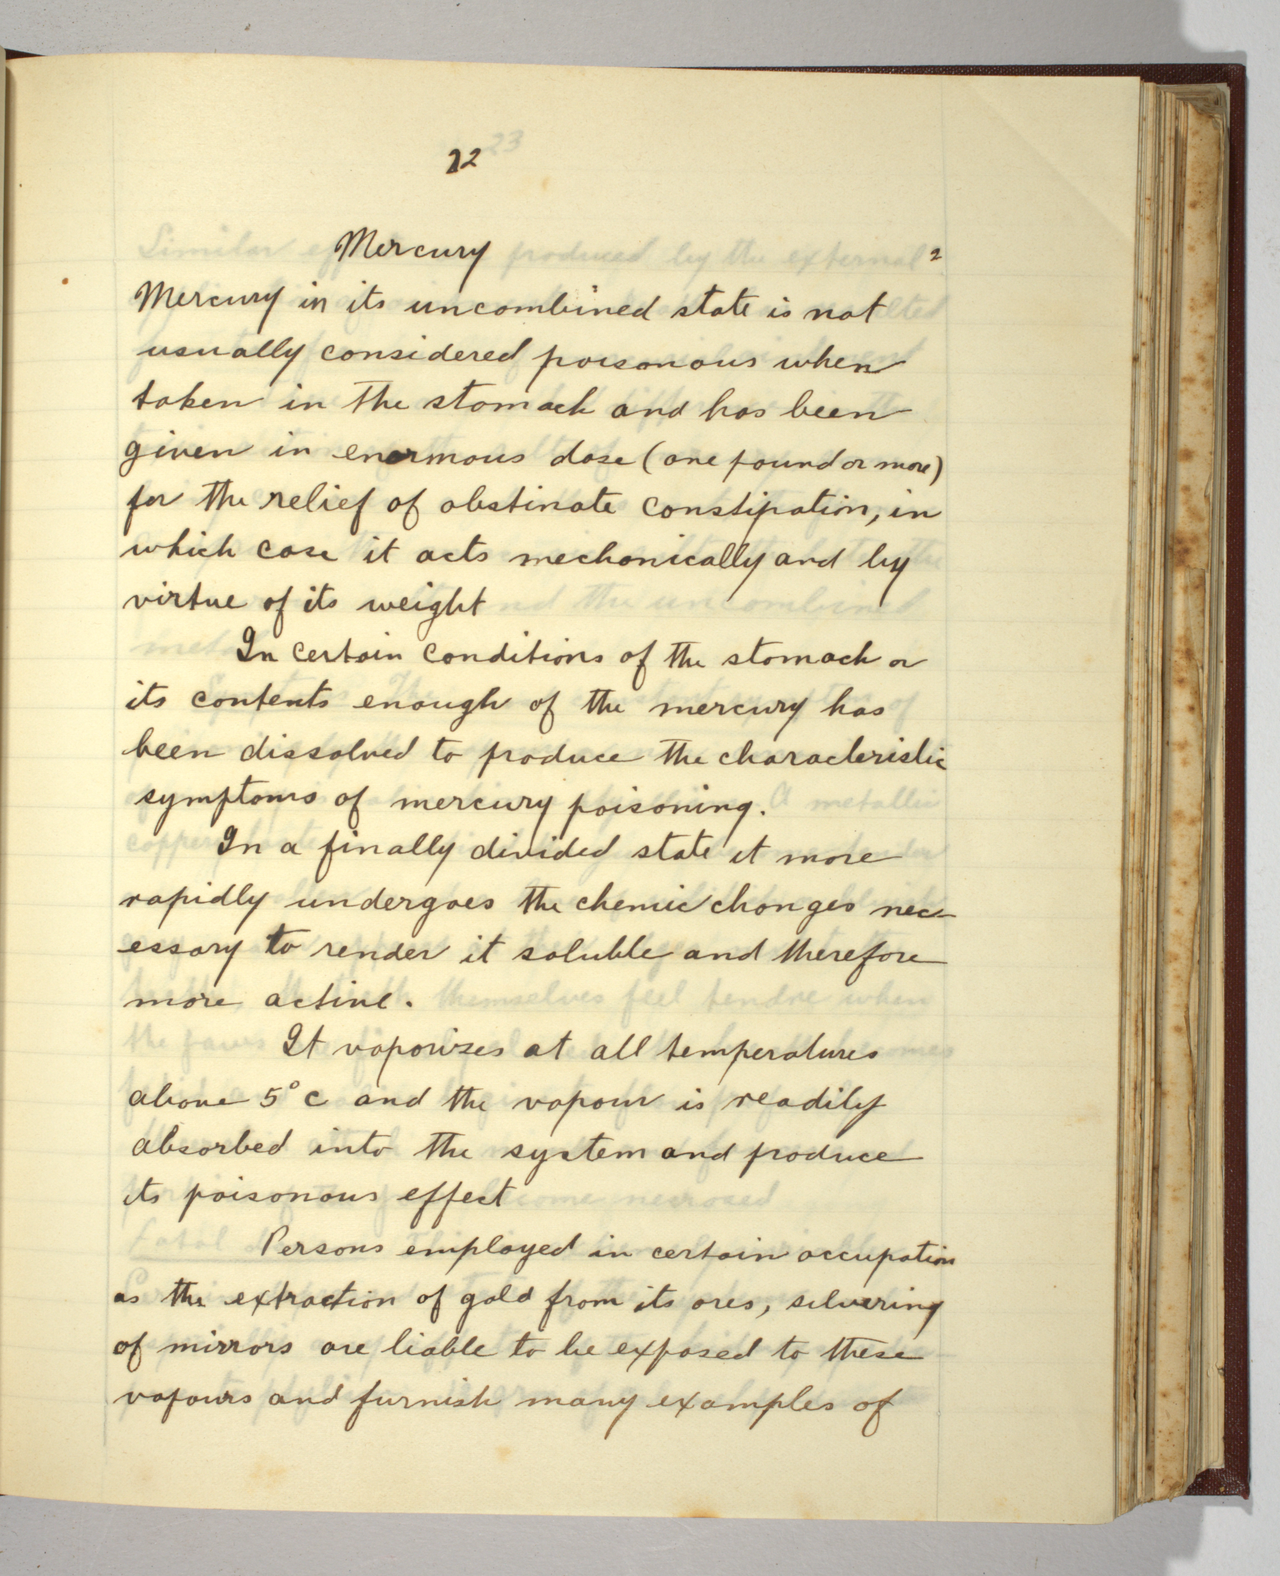 22
Mercury 2
Mercury in its uncombined state is not
usually considered poisonous when
taken in the stomach and has been
given in enormous dose (one pound or more)
for the relief of obstinate constipation, in
which case it acts mechanically and by
virtue of its weight
In certain conditions of the stomach or
its contents enough of the mercury has
been dissolved to produce the characteristic
symptoms of mercury poisoning.
In a finally divided state it more
rapidly undergoes the chemic changes nec-
essary to render it soluble and therefore
more active.
It vaporizes at all temperatures
above 5° c and the vapour is readily
absorbed into the system and produce
its poisonous effect
Persons employed in certain occupation
as the extraction of gold from its ores, silvering
of mirrors are liable to be exposed to these
vapours and furnish many examples of